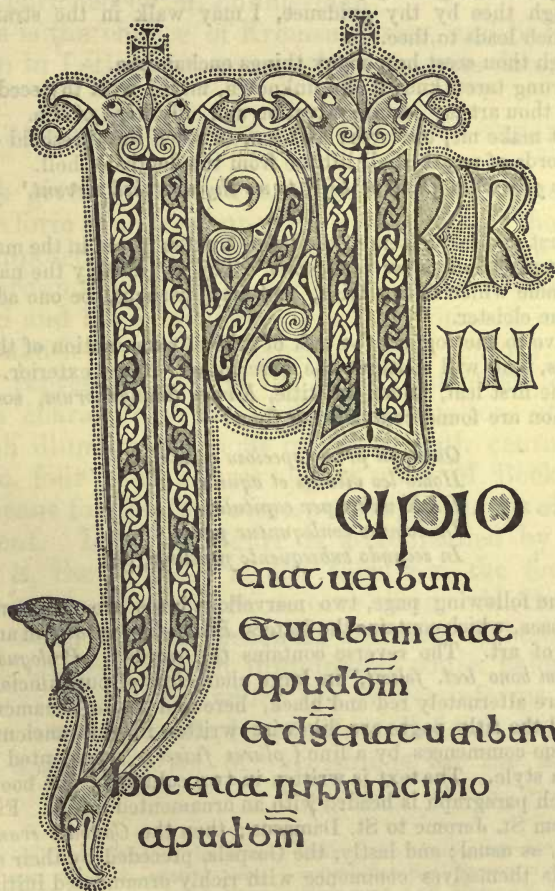 INPR
IN
CIPIO
erat uerbum
Et uerbum erat
apud d̄m̄
Et d̄s̄ erat uerbum
hoc erat IN principio
apud d̄m̄